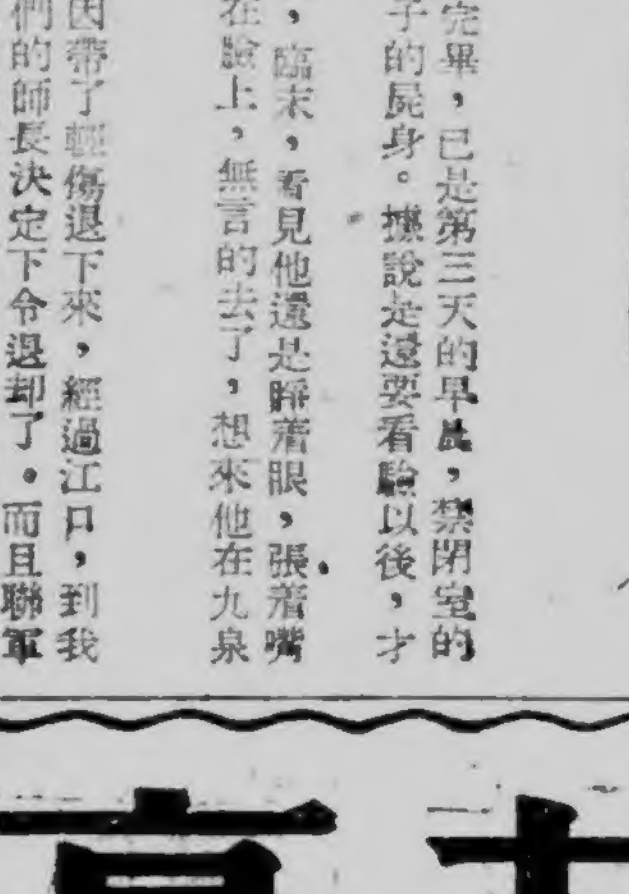 完畢，已是第三天的早晨，禁閉室的
子的屍身。據說是還要看驗以後，才
，臨末，看見他還是睜着眼，張着嘴
在臉上，無言的去了，想來他在九泉
因帶了輕傷退下來，經過江口，到我
們的師長決定下令退却了。而且聯軍